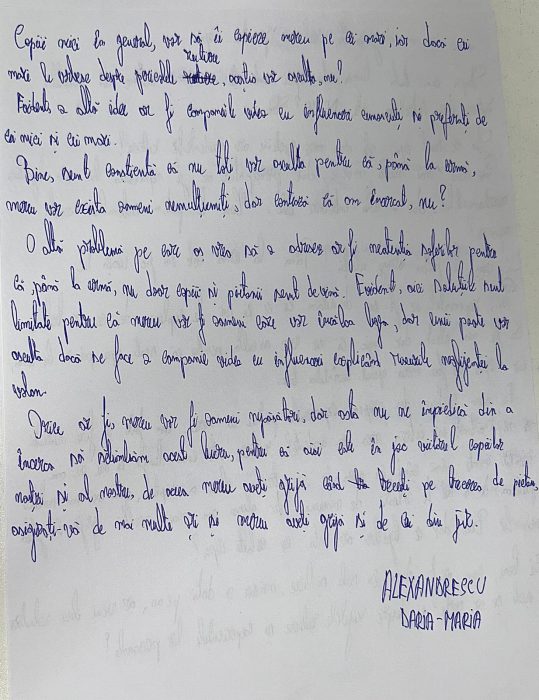 Copiii mici în general, vor să îi copieze mereu pe cei mari, iar dacă cei
mari le vorbesc despre pericolele rutiere, aceștia vor asculta, nu?
Evident, o altă idee ar fi campaniile video cu influenceri cunoscuți și preferați de
cei mici și cei mari.
Bine, sunt conștientă că nu toți vor asculta pentru că, până la urmă,
mereu vor exista oameni nemulțumiți, dar contează că am încercat, nu?
O altă problemă pe care aș vrea să o adresez ar fi neatenția șoferilor pentru
că, până la urmă, nu doar copiii și pietonii sunt de vină. Evident, aici soluțiile sunt
limitate pentru că mereu vor fi oameni care vor încălca legea, dar unii poate vor
asculta dacă se face o campanie video cu influenceri explicând riscurile neglijenței la
volan.
Orice ar fi, mereu vor fi oameni nepăsători, dar asta nu ne împiedică din a
încerca să schimbăm acest lucru, pentru că aici este în joc viitorul copiilor
noștri și al nostru, de aceea mereu aveți grijă când treceți pe trecerea de pietoni,
asigurați-vă de mai multe ori și mereu aveți grijă și de cei din jur.
ALEXANDRESCU
DARIA-MARIA